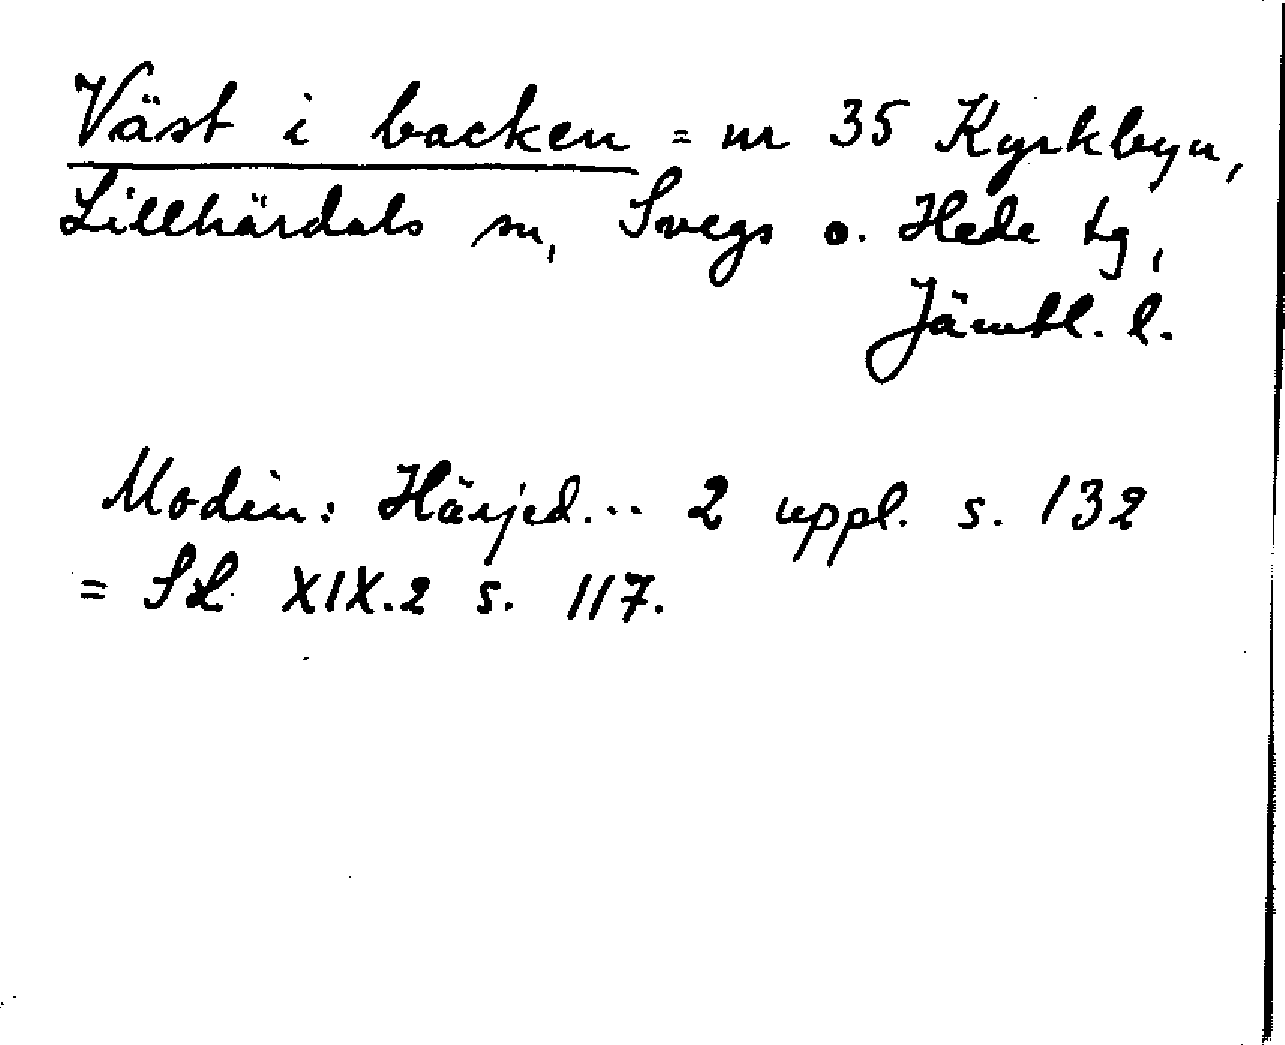 Väst i backen = nr 35 Kyrkbyn,
Lillhärdals sn, Svegs o. Hede tg,
Jämtl. l.
Modin: Härjed... 2 uppl. s. 132
= SL XIX.2 s. 117.